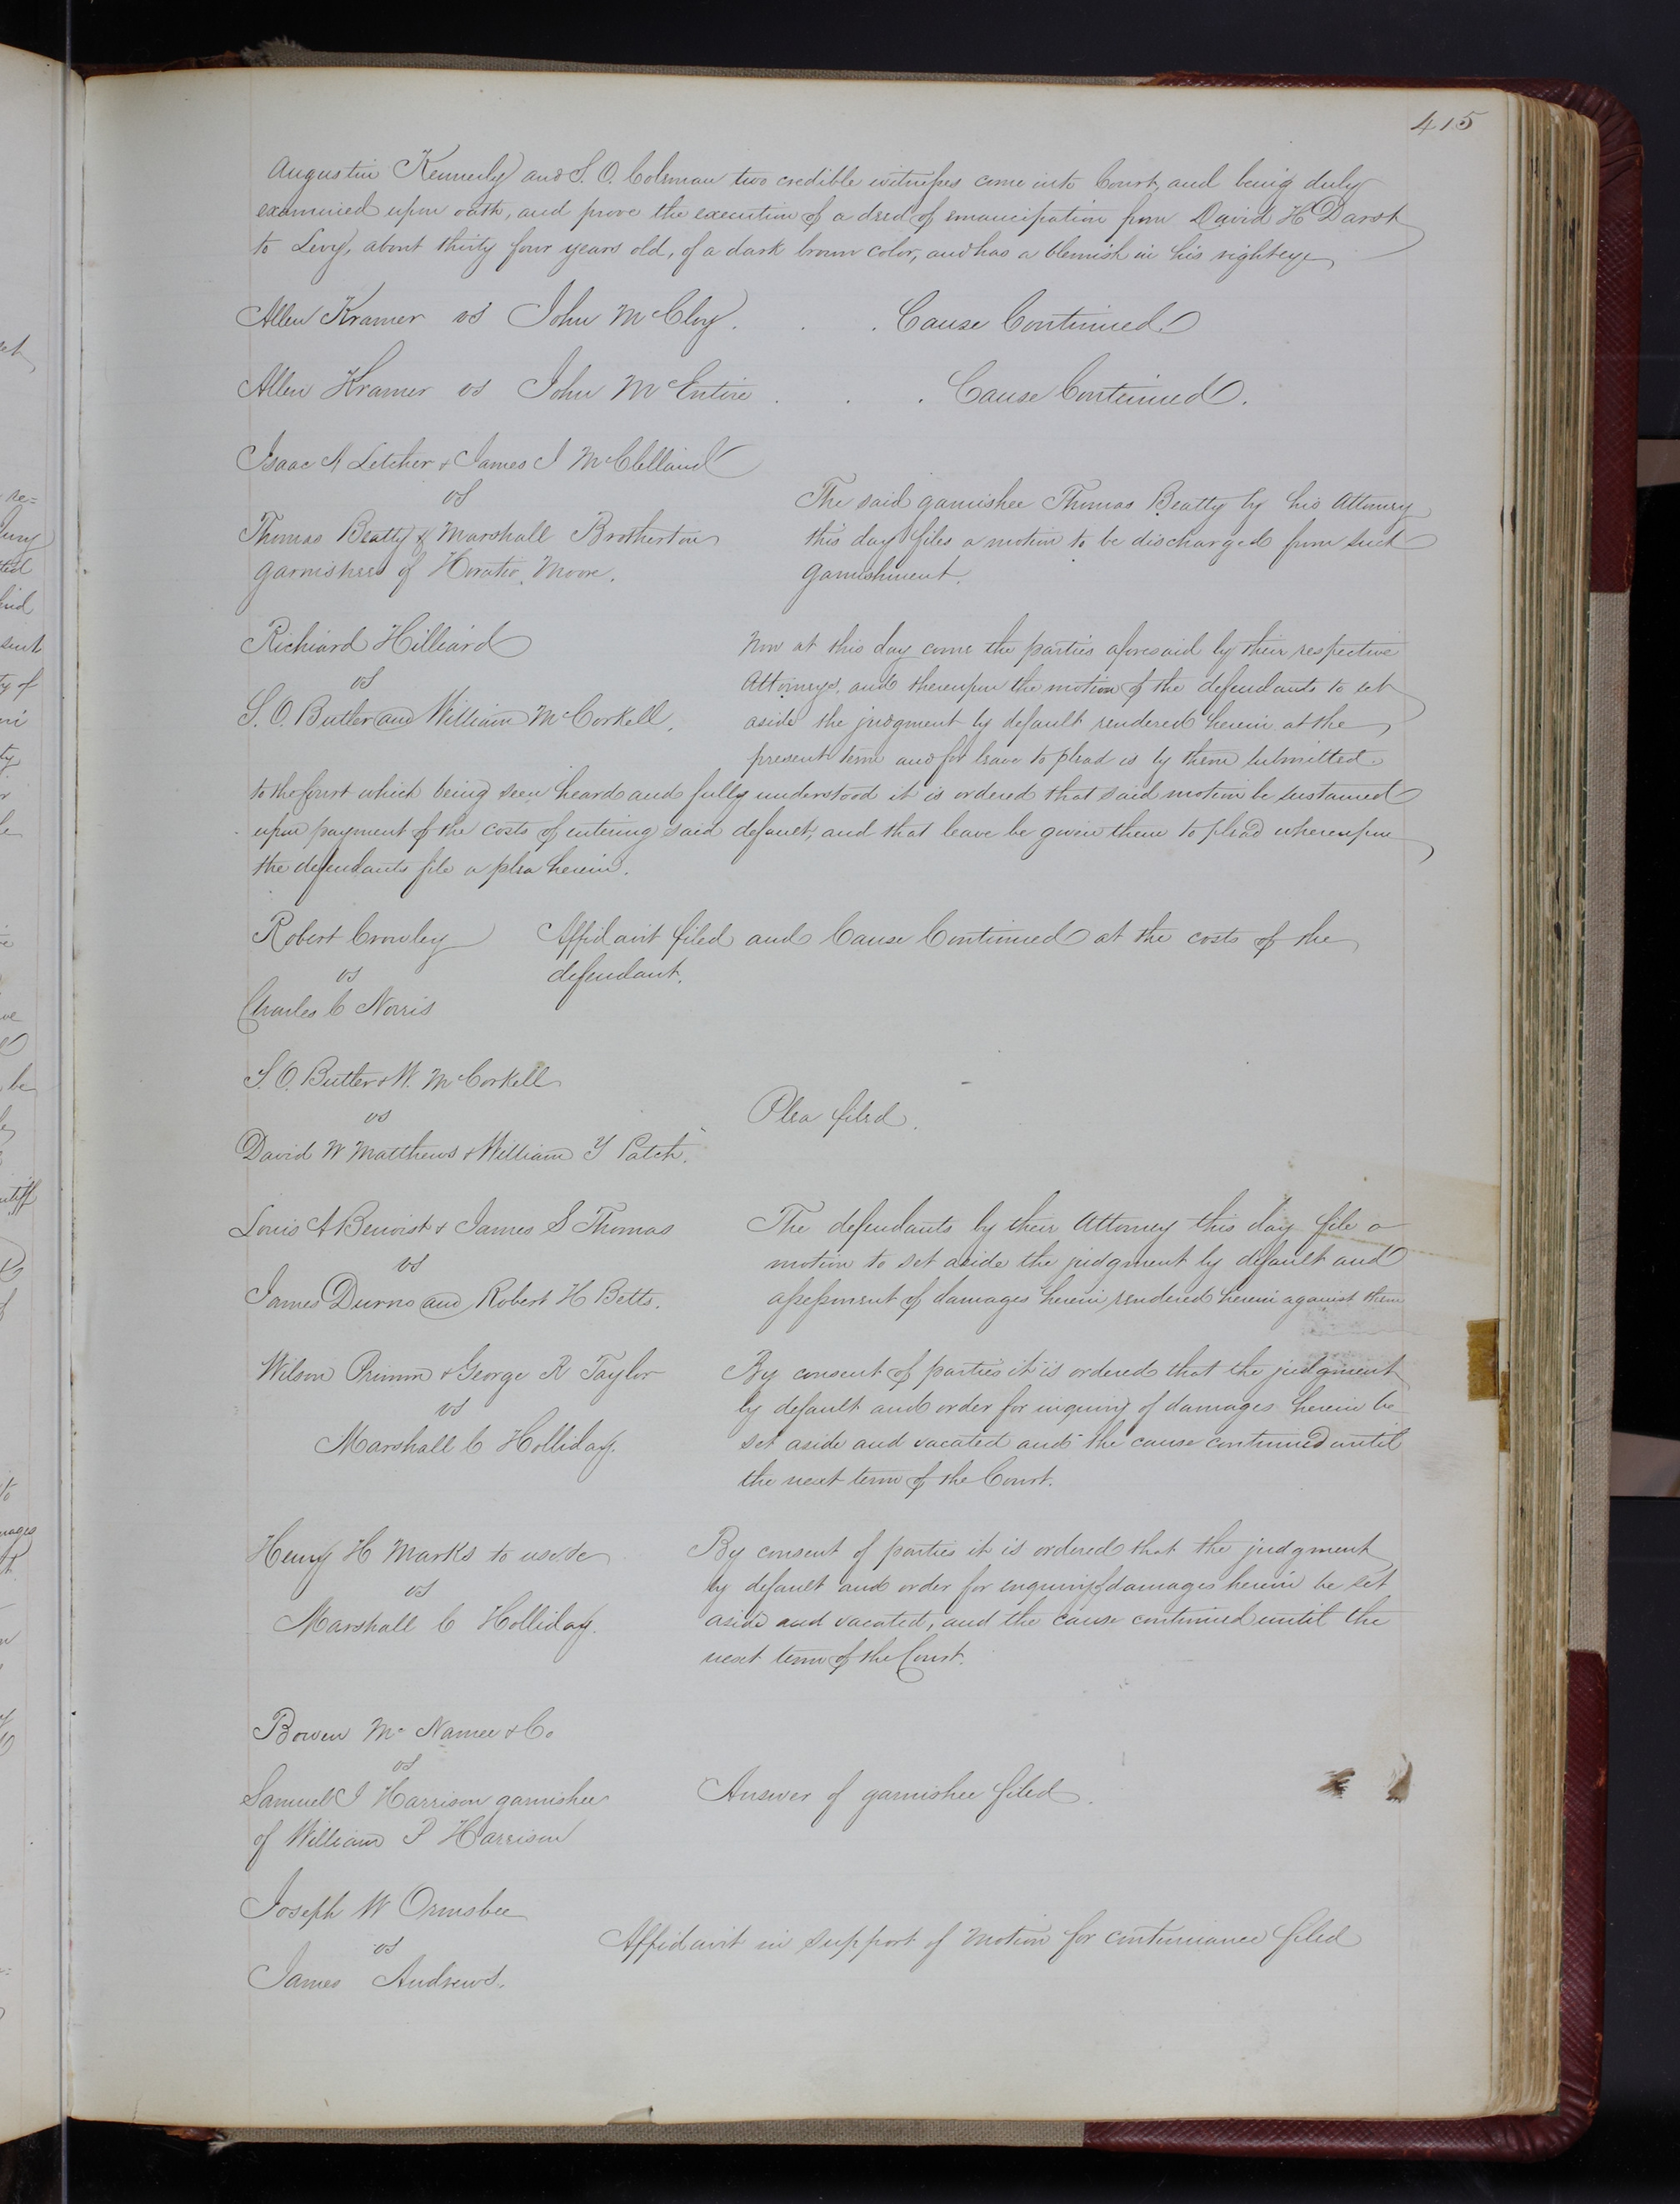 415
Augustin Kennerly and S. O. Coleman two credible witnesses come into Court, and being duly
examined upon oath, and prove the execution of a deed of emancipation from David H Darst
to Levy, about thirty four years old, of a dark brown color, and has a blemish in his right eye
Allen Kramer vs John McCloy. . . Cause Continued.
Allen Kramer vs John McEntire . . . Cause Continued.
Isaac A Letcher & James J McClelland
vs
Thomas Beatty & Marshall Brotherton
garnishees of Horatio Moore.
The said garnishee Thomas Beatty by his Attorney
this day files a motion to be discharged from such
garnishment.
Richard Hilliard
vs
S. O. Butler and William McCorkell.
Now at this day come the parties aforesaid by their respective
Attorneys, and thereupon the motion of the defendants to set
aside the judgment by default rendered herein at the
present term and for leave to plead is by them submitted
to the Court which being seen heard and fully understood it is ordered that said motion be sustained
upon payment of the costs of entering said default, and that leave be given them to plead whereupon
the defendants file a plea herein.
Robert Crowley
vs
Charles C Norris
Affidavit filed and Cause Continued at the costs of the
defendant.
S. O. Butler & W. McCorkell
vs
David W Matthews & William Y Patch.
Plea filed.
Louis A Benoist & James S Thomas
vs
James Durno and Robert H Betts.
The defendants by their Attorney this day file a
motion to set aside the judgment by default and
assessment of damages herein rendered herein against them
Wilson Primm & George R Taylor
vs
Marshall C Holliday.
By consent of parties it is ordered that the judgment
by default and order for inquiry of damages herein be
set aside and vacated and the cause continued until
the next term of the Court.
Henry H Marks to use &c
vs
Marshall C Holliday.
By consent of parties it is ordered that the judgment
by default and order for enquiry of damages herein be set
aside and vacated, and the cause continued until the
next term of the Court.
Bowen McNamee & Co
vs
Samuel J Harrison garnishee
of William P Harrison
Answer of garnishee filed.
Joseph W Ormsbee
vs
James Andrews.
Affidavit in support of motion for continuance filed